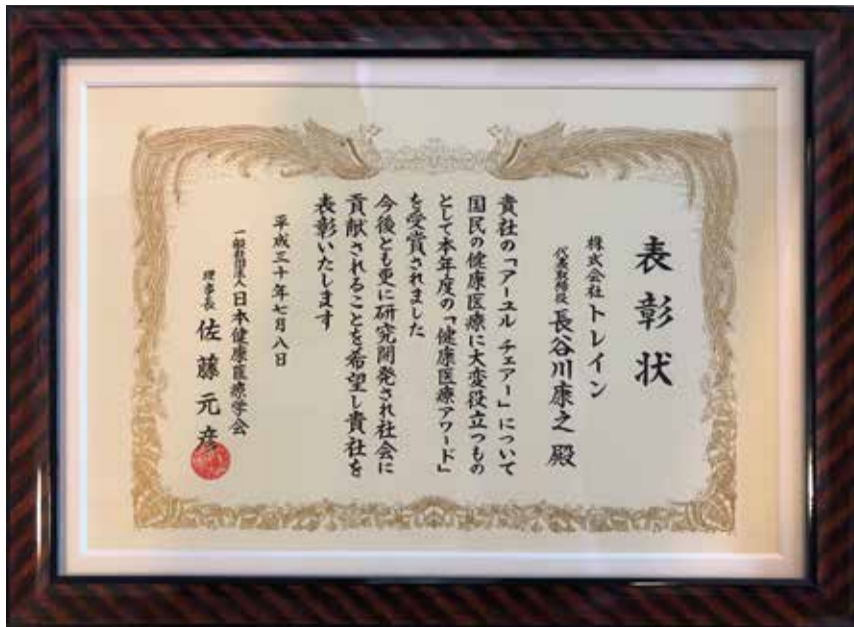 表彰状
株式会社トレイン
代表取締役 長谷川康之 殿
貴社の「アーユル チェアー」について
国民の健康医療に大変役立つもの
として本年度の「健康医療アワード」
を受賞されました
今後とも更に研究開発され社会に
貢献されることを希望し貴社を
表彰いたします
平成三十年七月八日
一般社団法人 日本健康医療学会
理事長 佐藤元彦